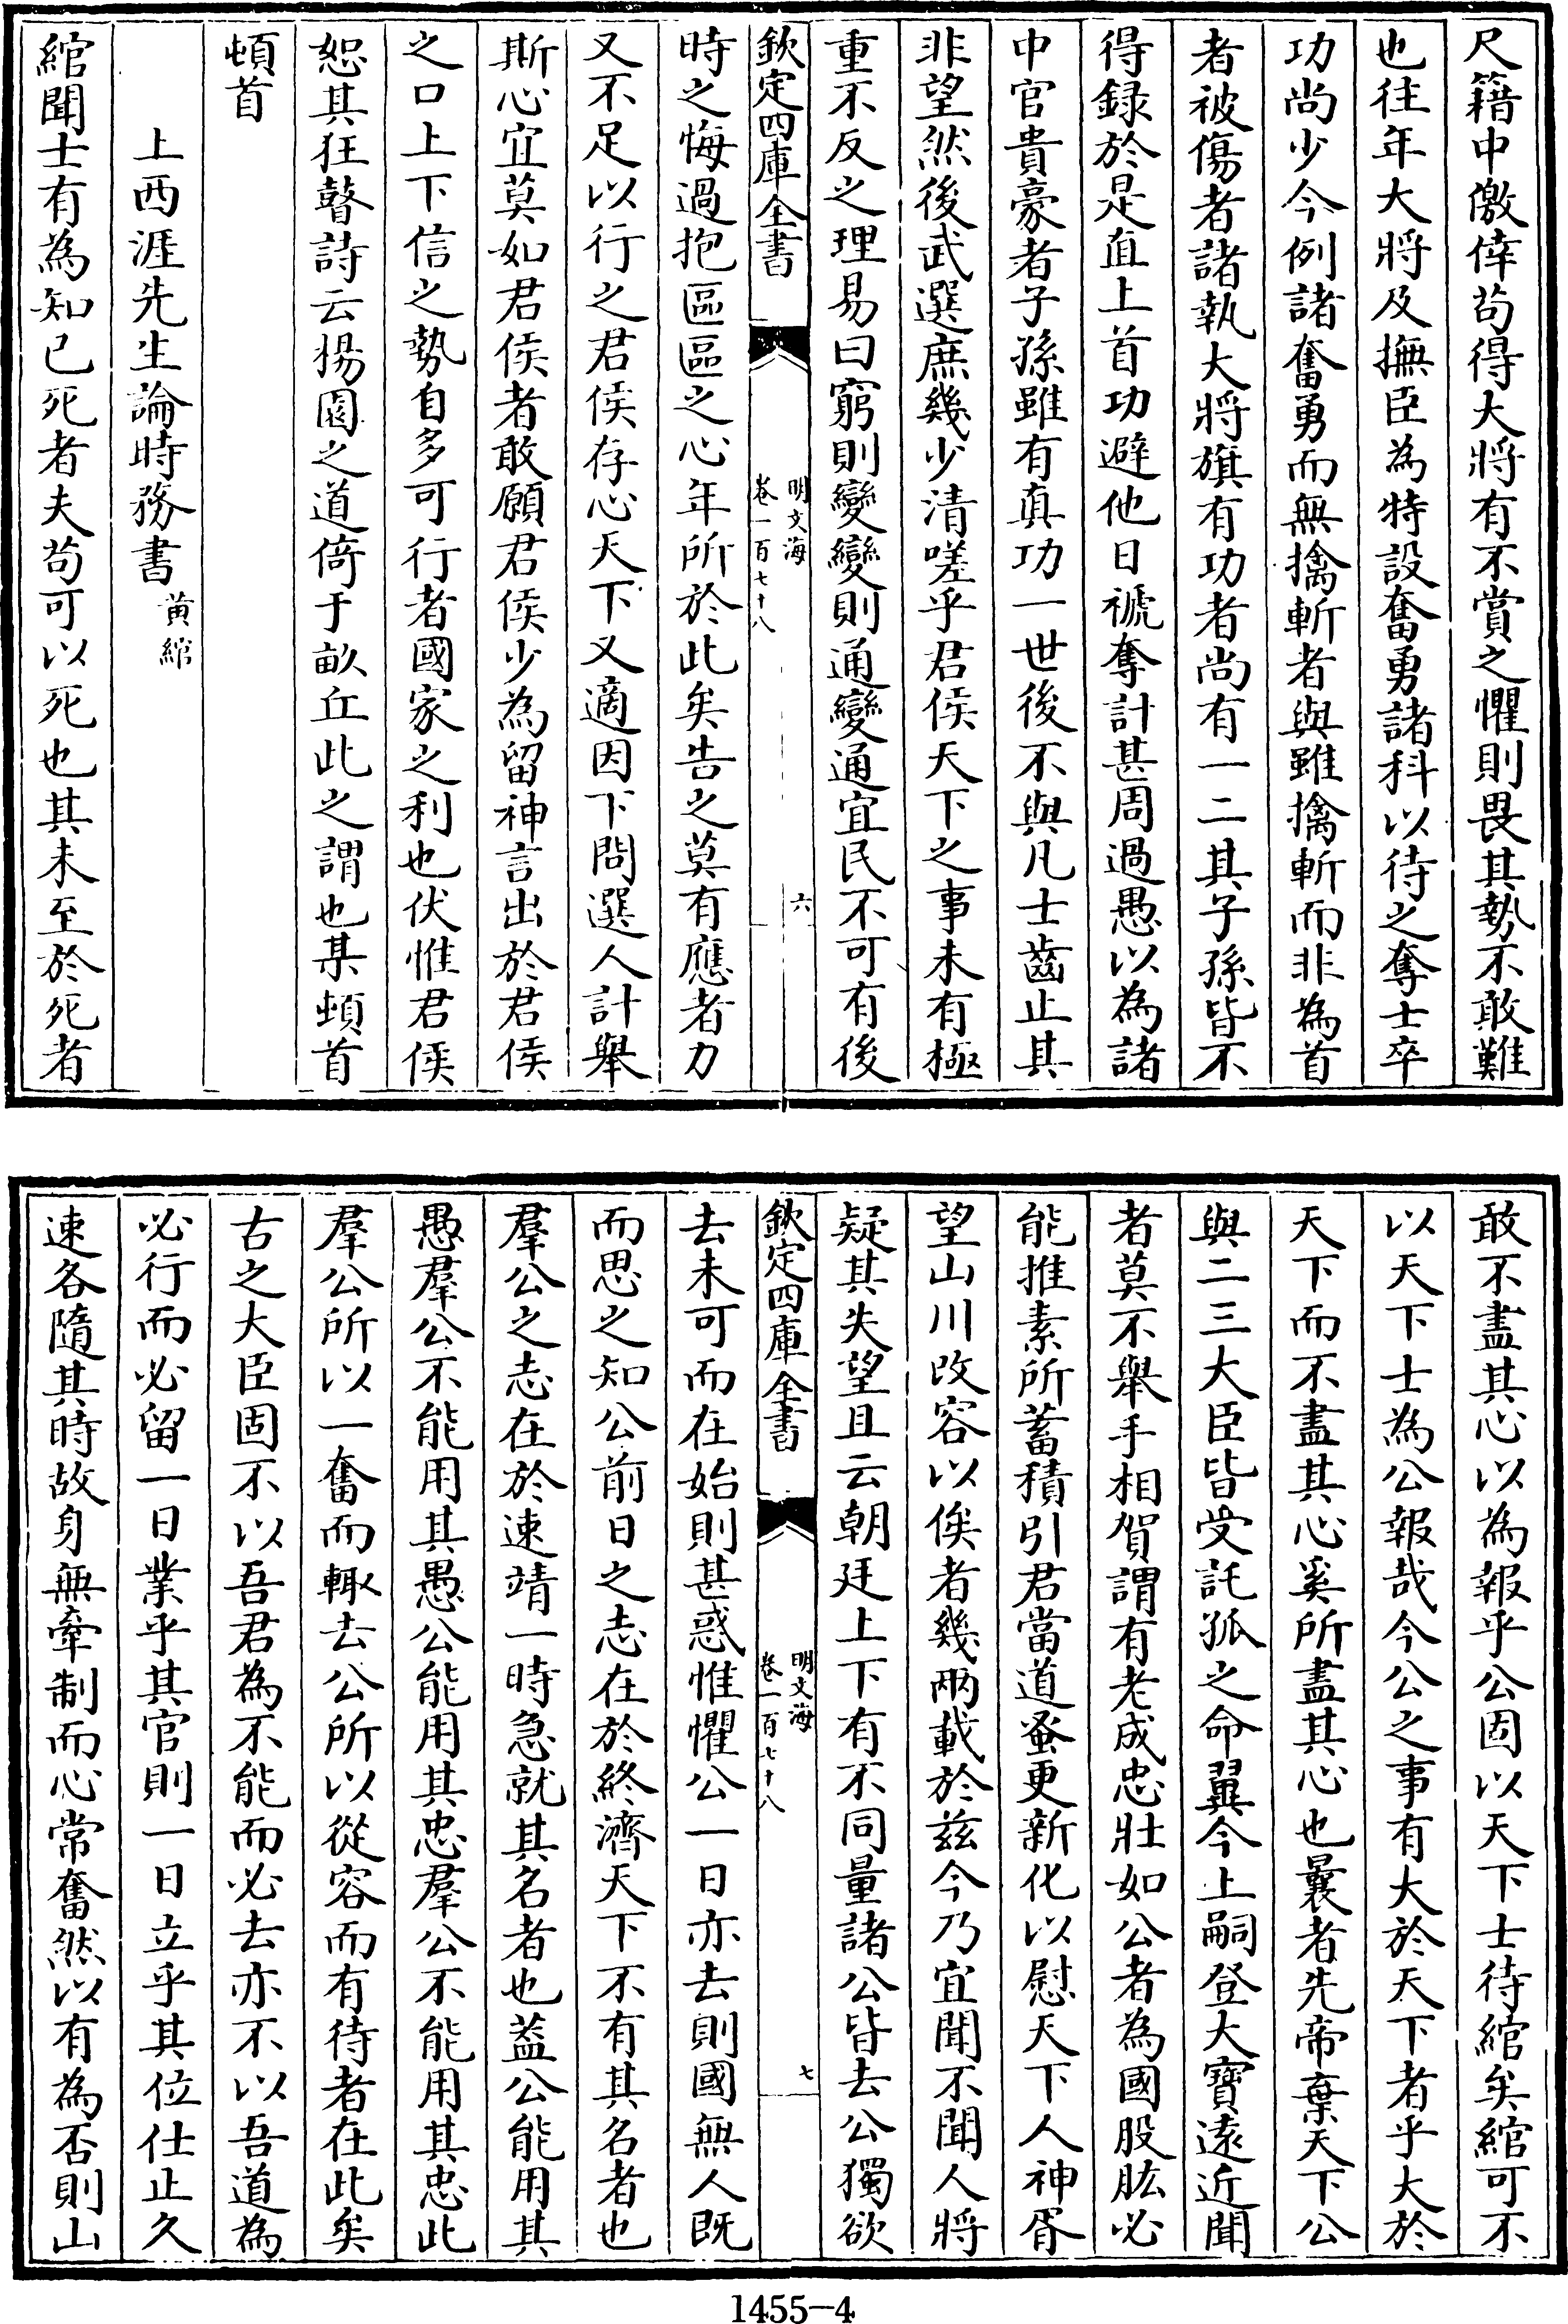 尺籍中儌倖茍得大將有不賞之懼則畏其勢不敢難
也往年大將及撫臣為特設奮勇諸科以待之奪士卒
功尚少今例諸奮勇而無擒斬者與雖擒斬而非為首
者被傷者諸執大將旗有功者尚有一二其子孫皆不
得録於是直上首功避他日褫奪計甚周過愚以為諸
中官貴豪者子孫雖有真功一世後不與凡士齒止其
非望然後武選庶幾少清嗟乎君侯天下之事未有極
重不反之理易曰窮則變變則通變通宜民不可有後
欽定四庫全書
明文海
卷一百七十八
六
時之悔過抱區區之心年所於此矣告之莫有應者力
又不足以行之君侯存心天下又適因下問選人計舉
斯心宜莫如君侯者敢願君侯少為留神言出於君侯
之口上下信之勢自多可行者國家之利也伏惟君侯
恕其狂瞽詩云楊園之道倚于畝丘此之謂也某頓首
頓首
上西涯先生論時務書 黃綰
綰聞士有為知已死者夫茍可以死也其未至於死者
敢不盡其心以為報乎公固以天下士待綰矣綰可不
以天下士為公報哉今公之事有大於天下者乎大於
天下而不盡其心奚所盡其心也曩者先帝棄天下公
與二三大臣皆受託孤之命翼今上嗣登大寶遠近聞
者莫不舉手相賀謂有老成忠壯如公者為國股肱必
能推素所蓄積引君當道蚤更新化以慰天下人神胥
望山川改容以俟者幾兩載於兹今乃宜聞不聞人將
疑其失望且云朝廷上下有不同量諸公皆去公獨欲
欽定四庫全書
明文海
卷一百七十八
七
去未可而在始則甚惑惟懼公一日亦去則國無人既
而思之知公前日之志在於終濟天下不有其名者也
羣公之志在於速靖一時急就其名者也葢公能用其
愚羣公不能用其愚公能用其忠羣公不能用其忠此
羣公所以一奮而輙去公所以從容而有待者在此矣
古之大臣固不以吾君為不能而必去亦不以吾道為
必行而必留一日業乎其官則一日立乎其位仕止久
速各隨其時故身無牽制而心常奮然以有為否則山
1455-4